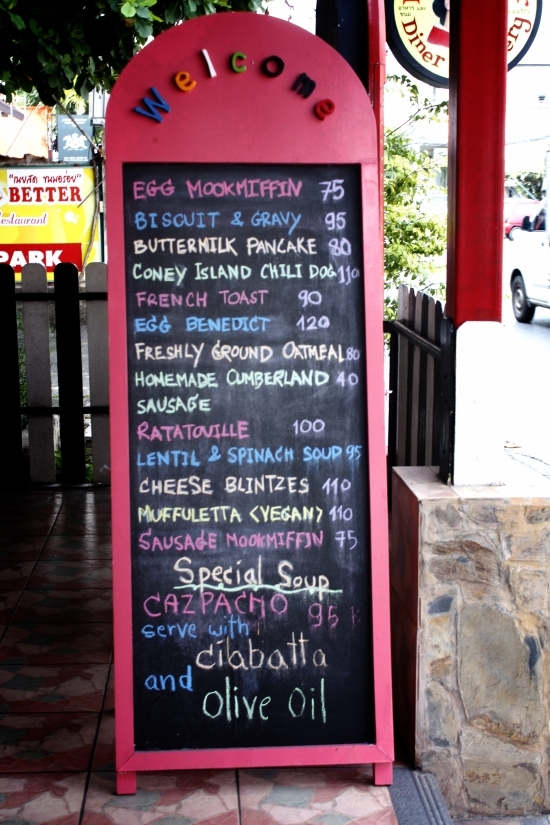 Welcome
EGG MOOKMIFFIN 75
BISCUIT & GRAVY 95
BUTTERMILK PANCAKE 80
CONEY ISLAND CHILI DOG 110
FRENCH TOAST 90
EGG BENEDICT 120
FRESHLY GROUND OATMEAL 80
HOMEMADE CUMBERLAND 40
SAUSAGE
RATATOUILLE 100
LENTIL & SPINACH SOUP 95
CHEESE BLINTZES 110
MUFFULETTA (VEGAN) 110
SAUSAGE MOOKMIFFIN 75
Special Soup
CAZPACHO 95 ฿
serve with
cilabatta
and
Olive Oil
BETTER
Restaurant
PARK
Diner